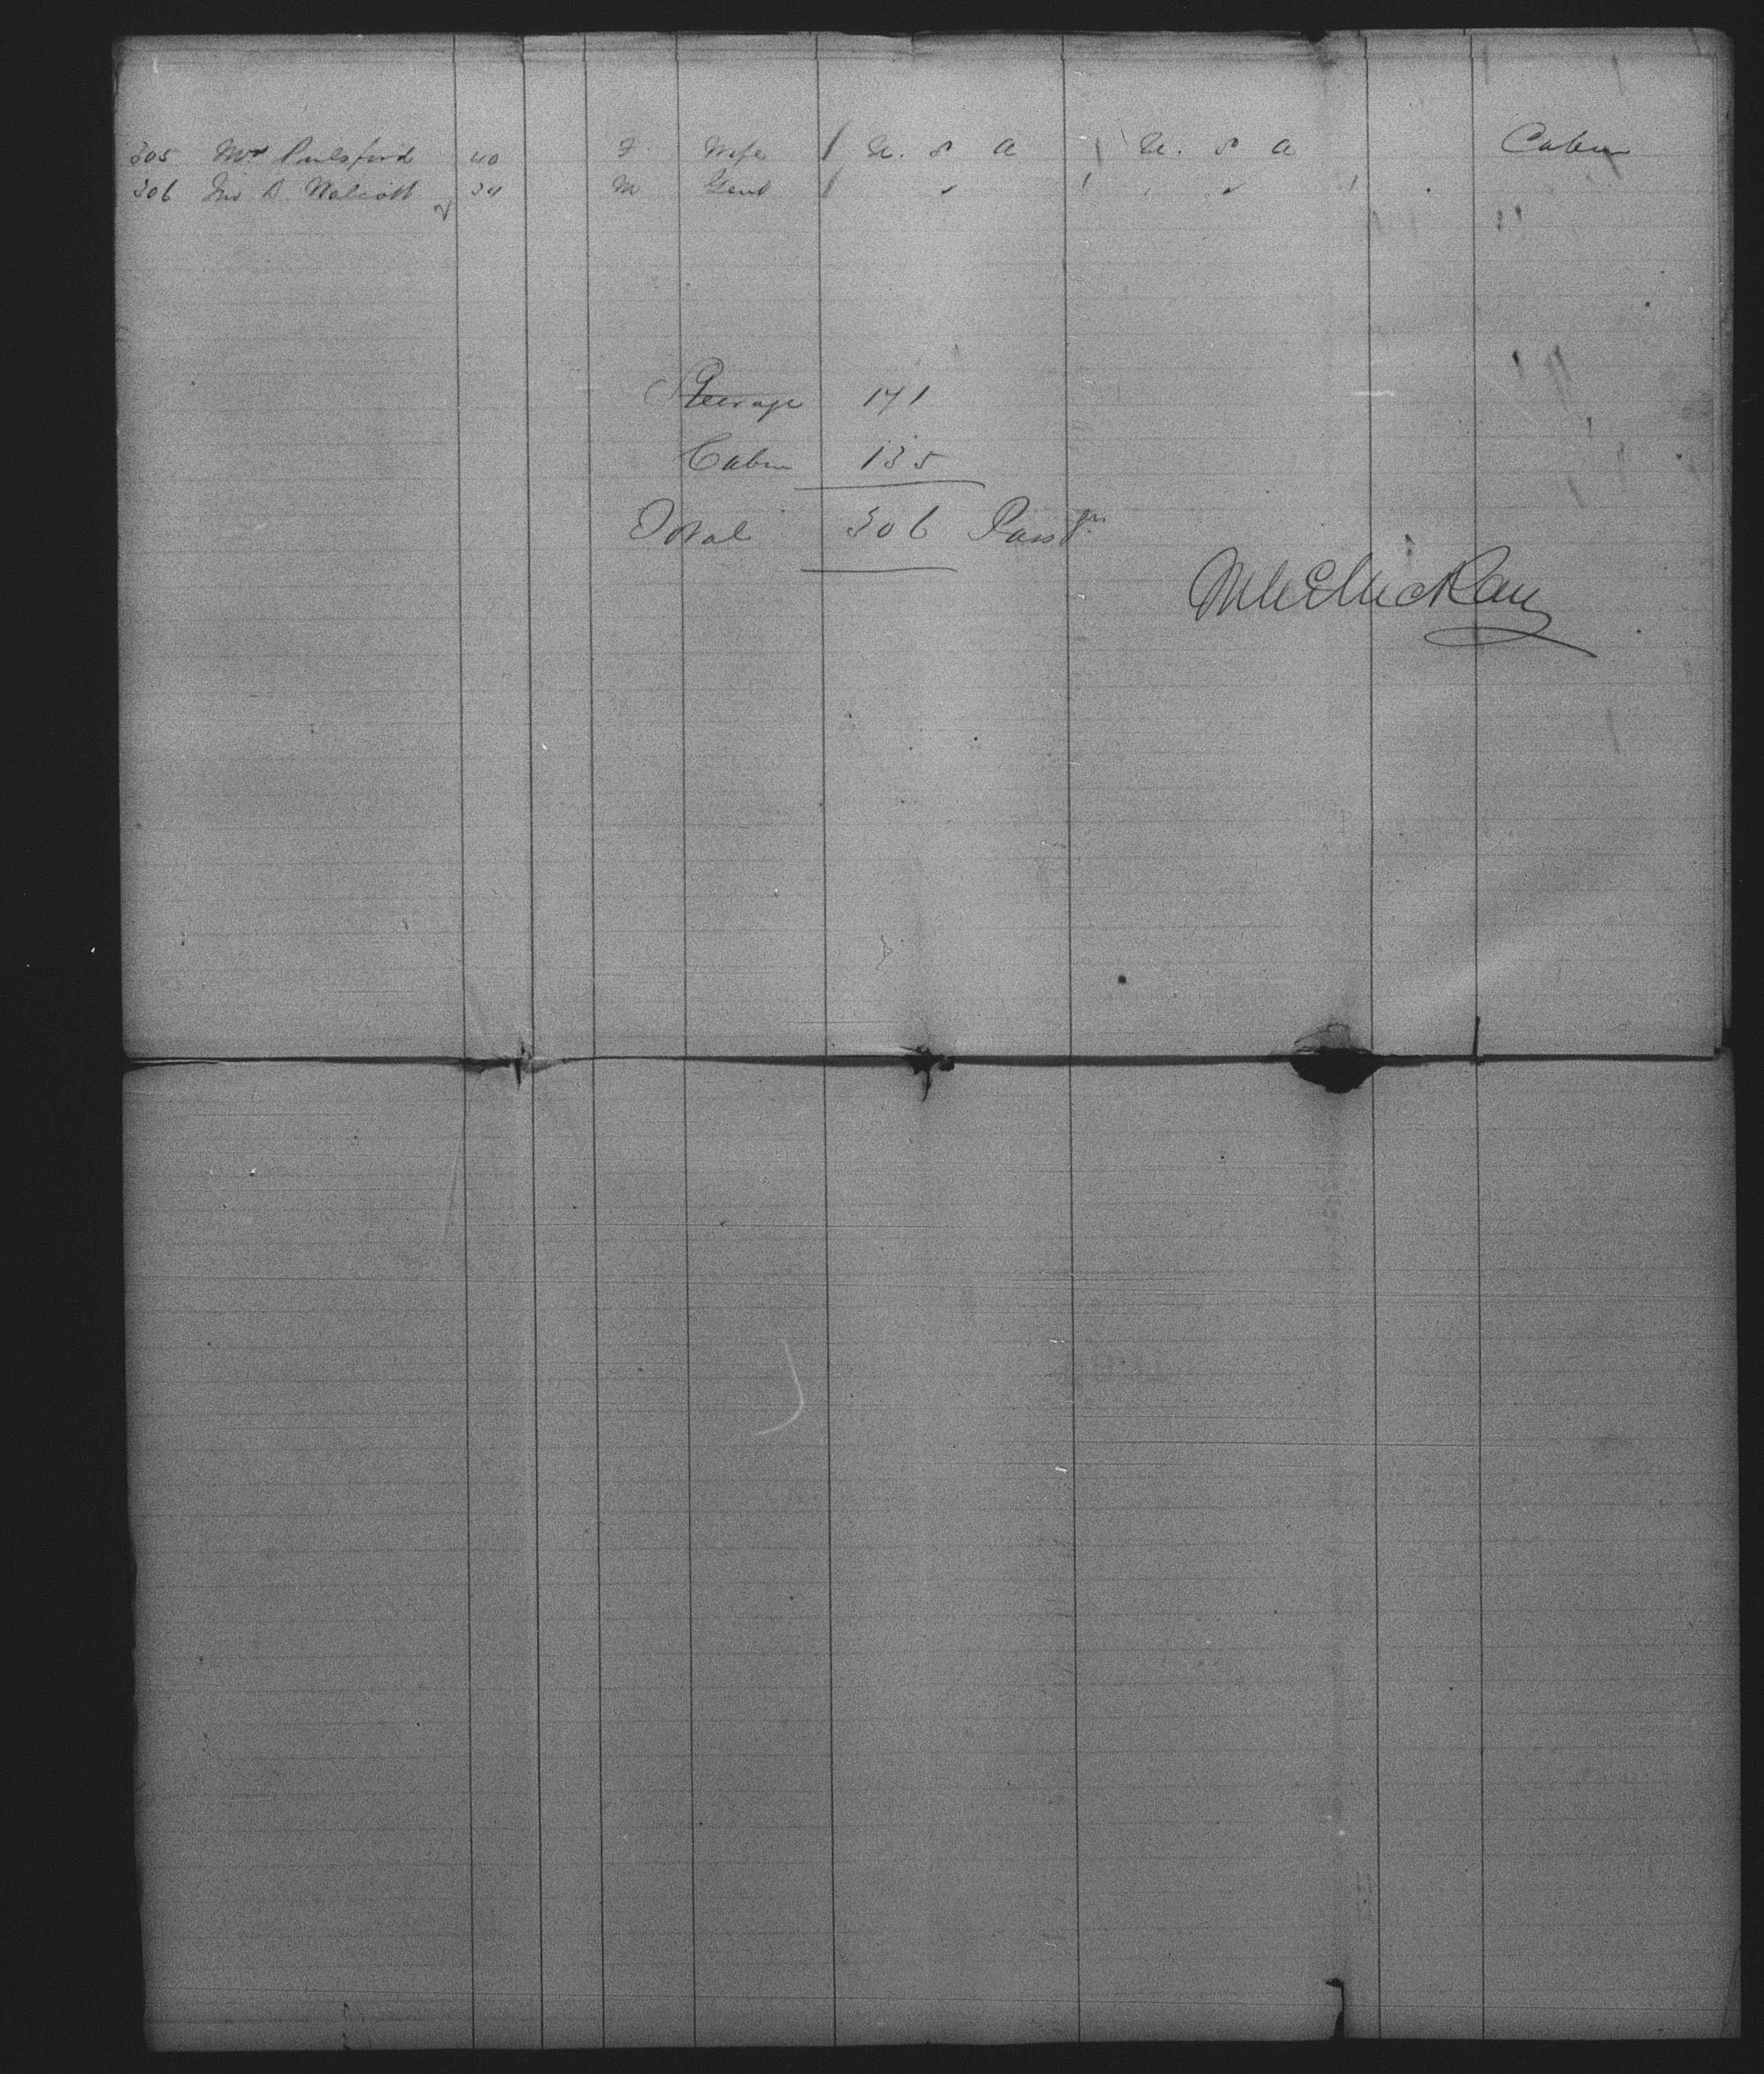 305 Mrs Pulsford 40 F Wife U. S A U. S A Cabin
306 Jno B. Walcott 24 M Gent " "
Steerage 171
Cabin 135
Total 306 Passgrs